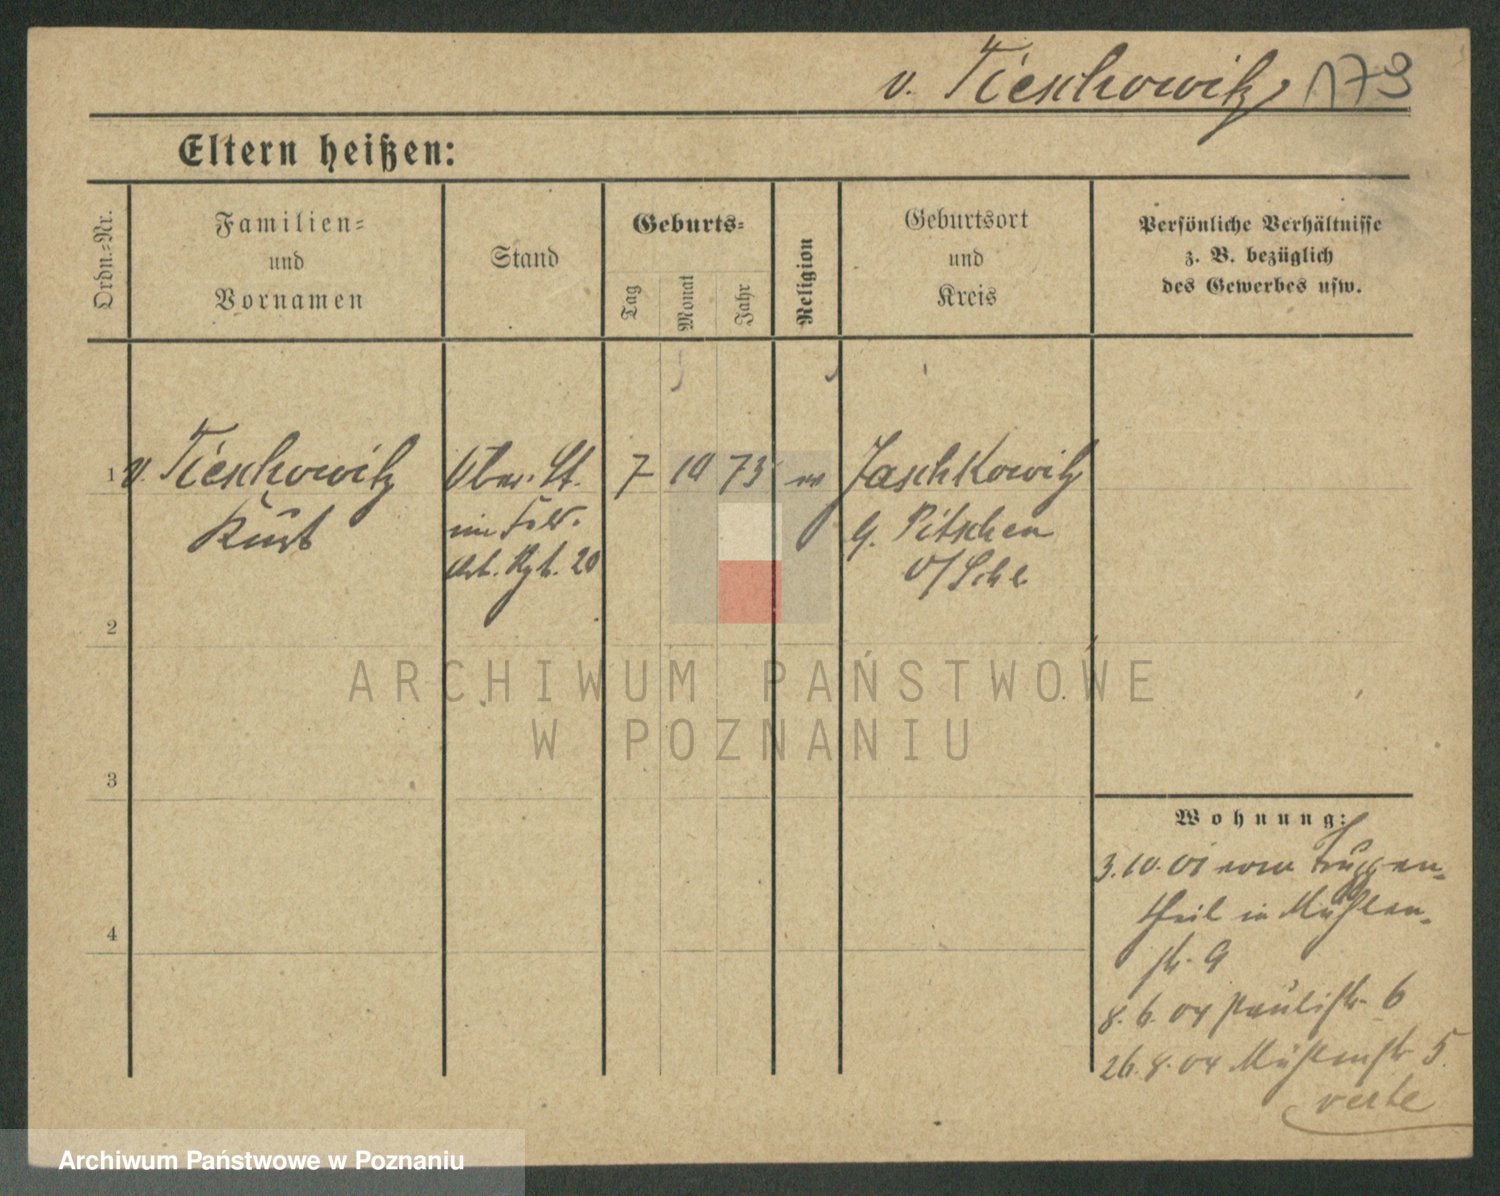 v. Tieschowitz 173
Eltern heißen:
Ordn.=Nr.
Familien=
und
Vornamen
Stand
Geburts=
Tag
Monat
Jahr
Religion
Geburtsort
und
Kreis
Persönliche Verhältnisse
z. B. bezüglich
des Gewerbes usw.
1 v. Tieschowitz
Kurt
Ober. Lt.
im Feld.
Art. Rgt. 20
7 10 73
Jaschkowitz
Pitschen
O/Schl
2
3
4
ARCHIWUM PAŃSTWOWE
W POZNANIU
Wohnung:
3.10.01 vom Truppen-
theil in Mühlen-
str. 9
8. 6. 04 Paulistr. 6
26. 8. 04 Mühlenstr 5.
verte
Archiwum Państwowe w Poznaniu